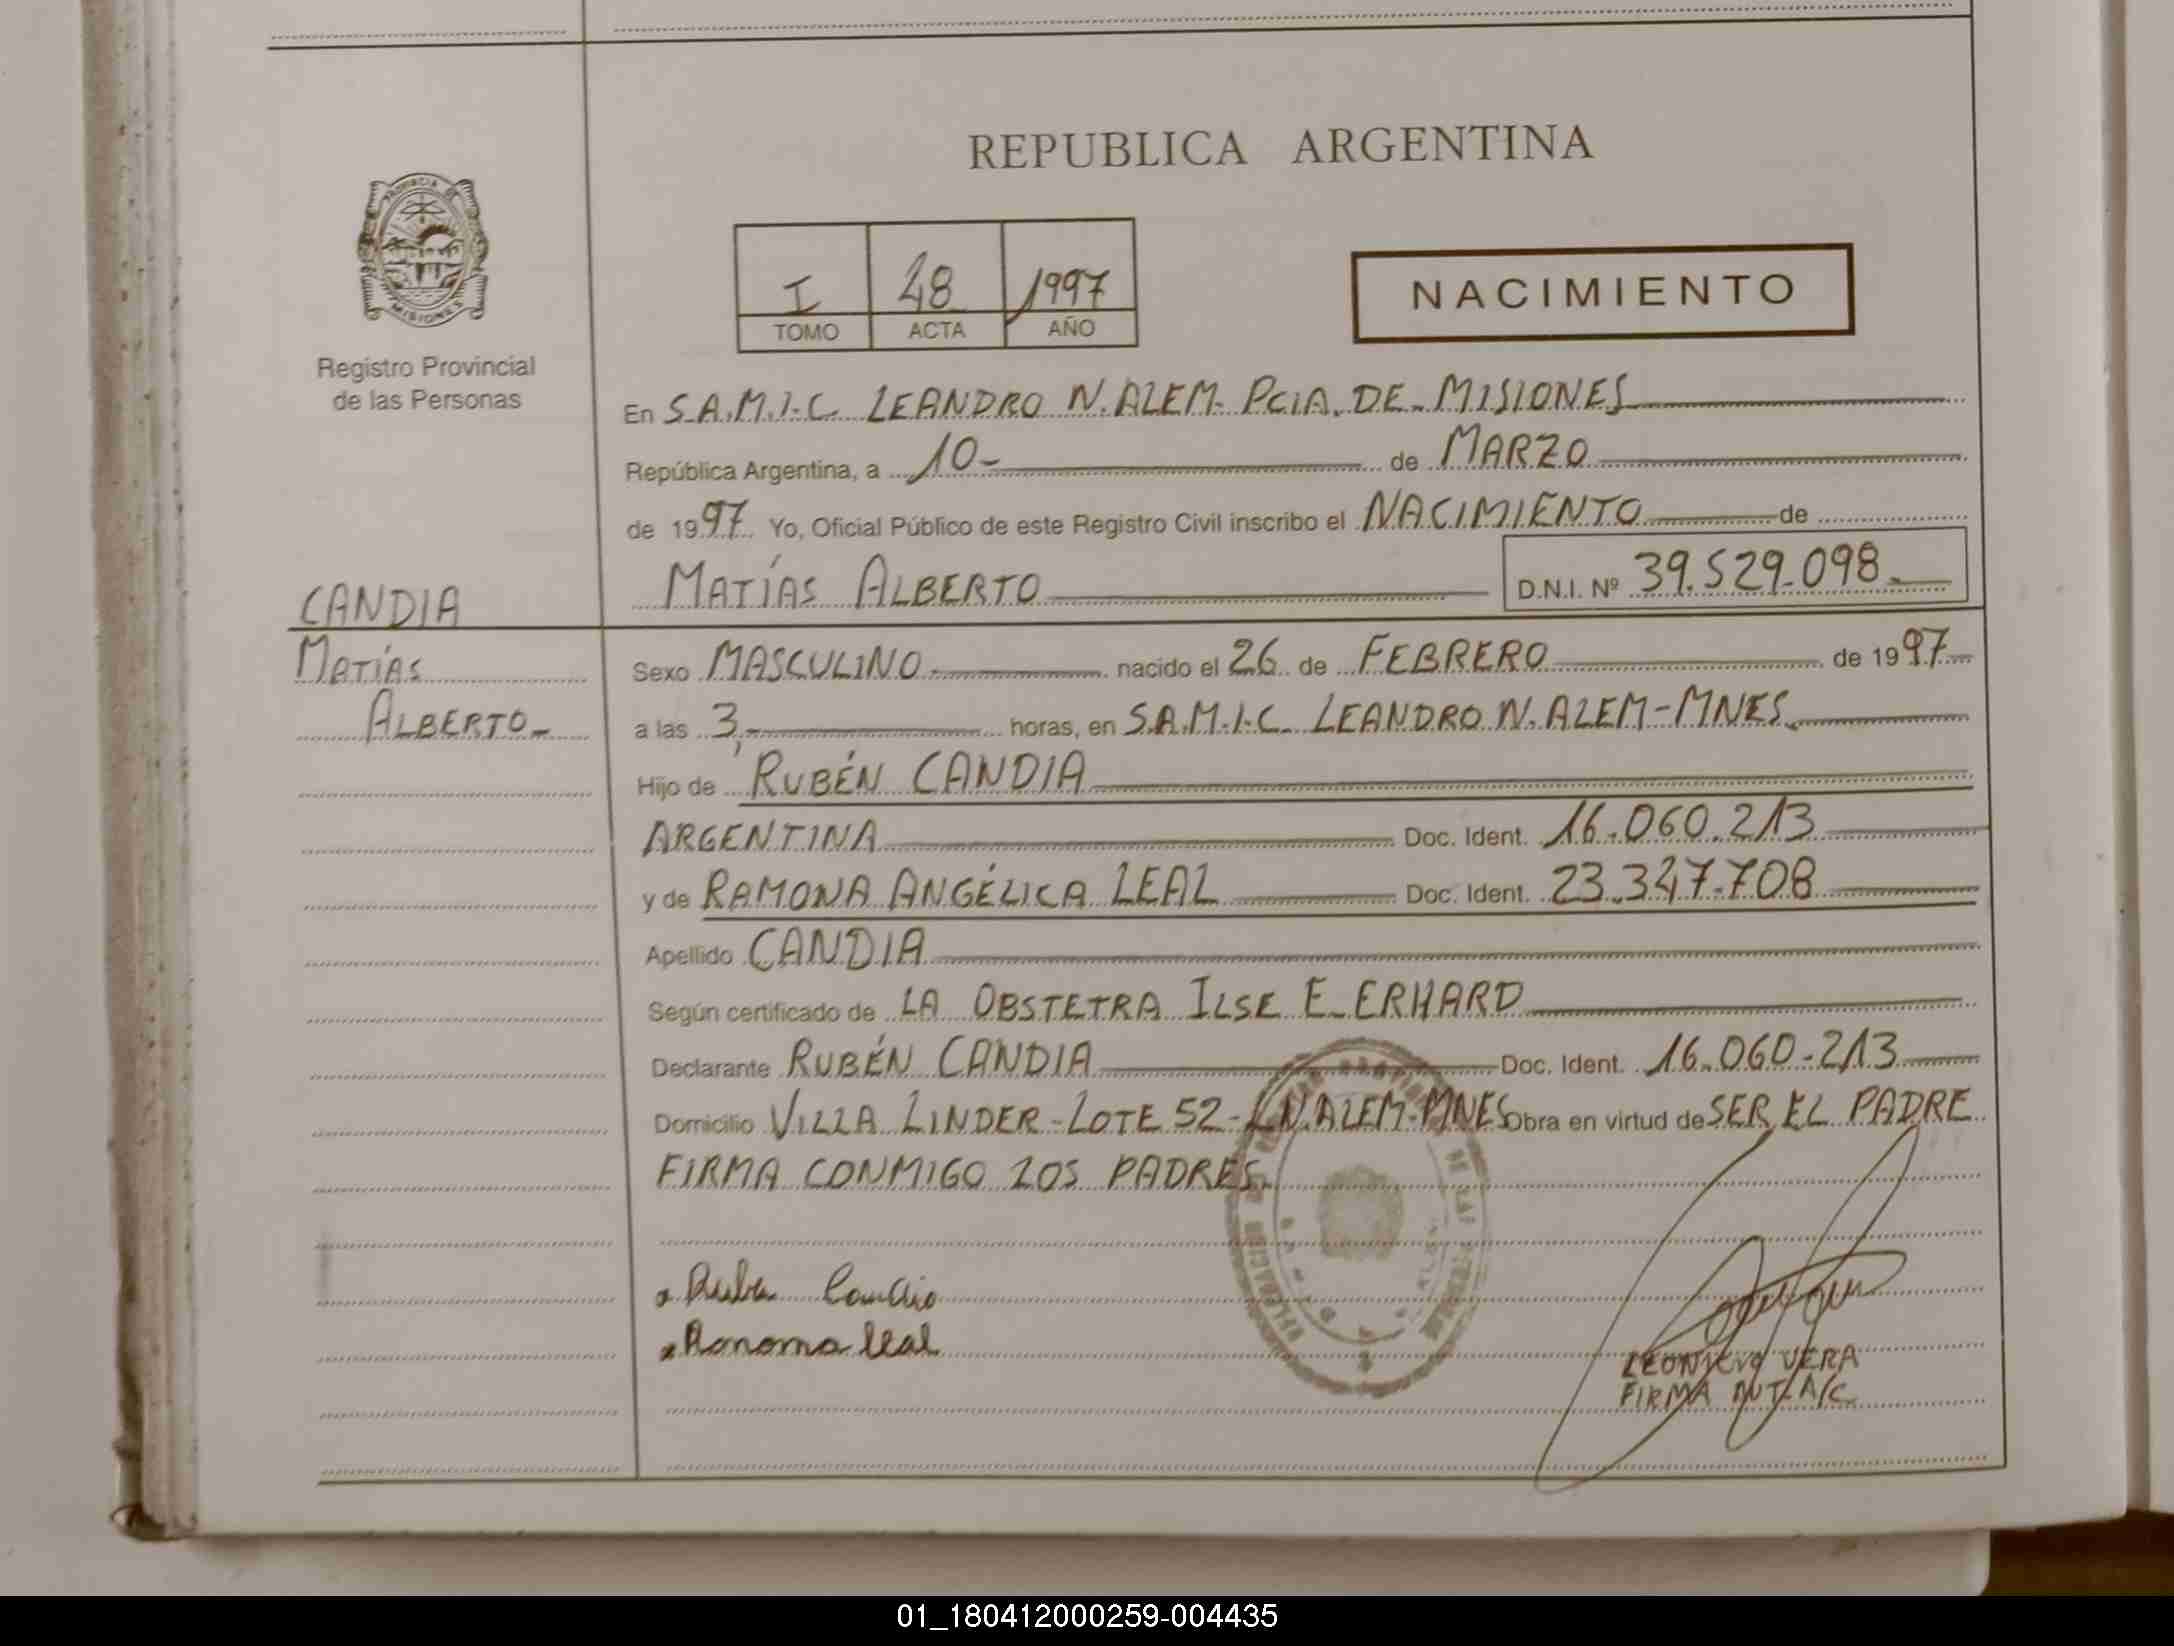 REPUBLICA ARGENTINA
PROVINCIA DE MISIONES
Registro Provincial
de las Personas
I 48 1997
TOMO ACTA AÑO
NACIMIENTO
En S.A.M.I.C. LEANDRO N. ALEM- PCIA. DE MISIONES
República Argentina, a 10- de MARZO
de 1997 Yo, Oficial Público de este Registro Civil inscribo el NACIMIENTO de
MATÍAS ALBERTO D.N.I. Nº 39.529.098
CANDIA
MATÍAS
ALBERTO-
Sexo MASCULINO- nacido el 26 de FEBRERO de 1997
a las 3,- horas, en S.A.M.I.C. LEANDRO N. ALEM-MNES.
Hijo de RUBÉN CANDIA
ARGENTINA Doc. Ident. 16.060.213
y de RAMONA ANGÉLICA LEAL Doc. Ident. 23.347.708
Apellido CANDIA
Según certificado de LA OBSTETRA ILSE E. ERHARD
Declarante RUBÉN CANDIA Doc. Ident. 16.060.213
Domicilio VILLA LINDER-LOTE 52-L.N.ALEM-MNES Obra en virtud de SER EL PADRE
FIRMA CONMIGO LOS PADRES.
Ruben Candia
Ramona leal
VERA
FIRMA AUT. A/C
01_180412000259-004435